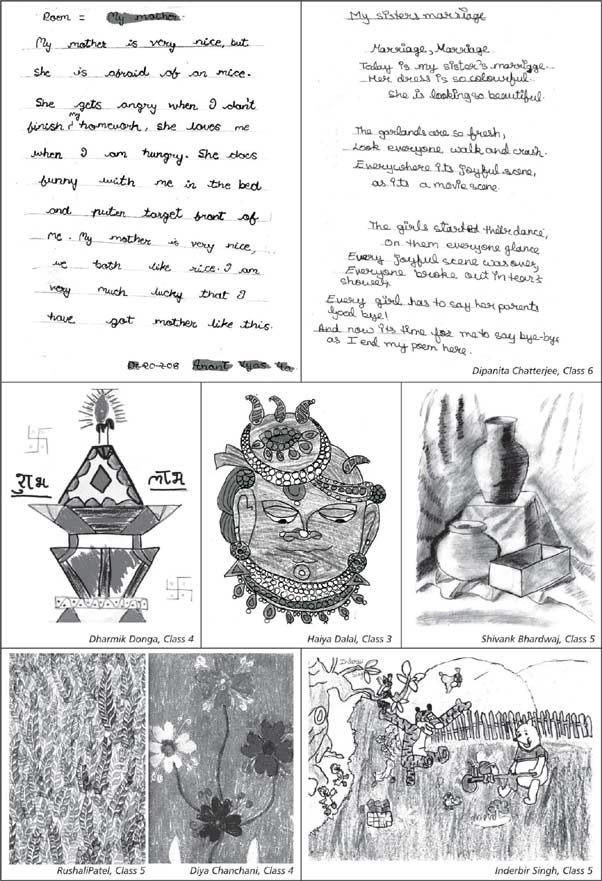 Poem = My mother
My mother is very nice, but
she is afraid of an mice.
She gets angry when I don't
finish my homework, she loves me
when I am hungry. She does
funny with me in the bed
and puten target front of
me. My mother is very nice,
we both like rice. I am
very much lucky that I
have got mother like this.
Anant Vyas
My sisters marriage
Marriage, Marriage
Today is my sister's marrigge.
Her dress is so colourful.
She is looking so beautiful.
The garlands are so fresh,
Look everyone walk and crash.
Everywhere its joyful scene,
as its a movie scene.
The girls started their dance,
On them everyone glance
Every joyful scene was over,
Everyone broke out in tears
shower,
Every girl has to say her parents
Good bye!
And now its time for me to say bye-bye
as I end my poem here.
Dipanita Chatterjee, Class 6
शुभ
लाभ
Dharmik Donga, Class 4
Haiya Dalal, Class 3
Shivank Bhardwaj, Class 5
RushaliPatel, Class 5
Diya Chanchani, Class 4
Inderbir Singh, Class 5